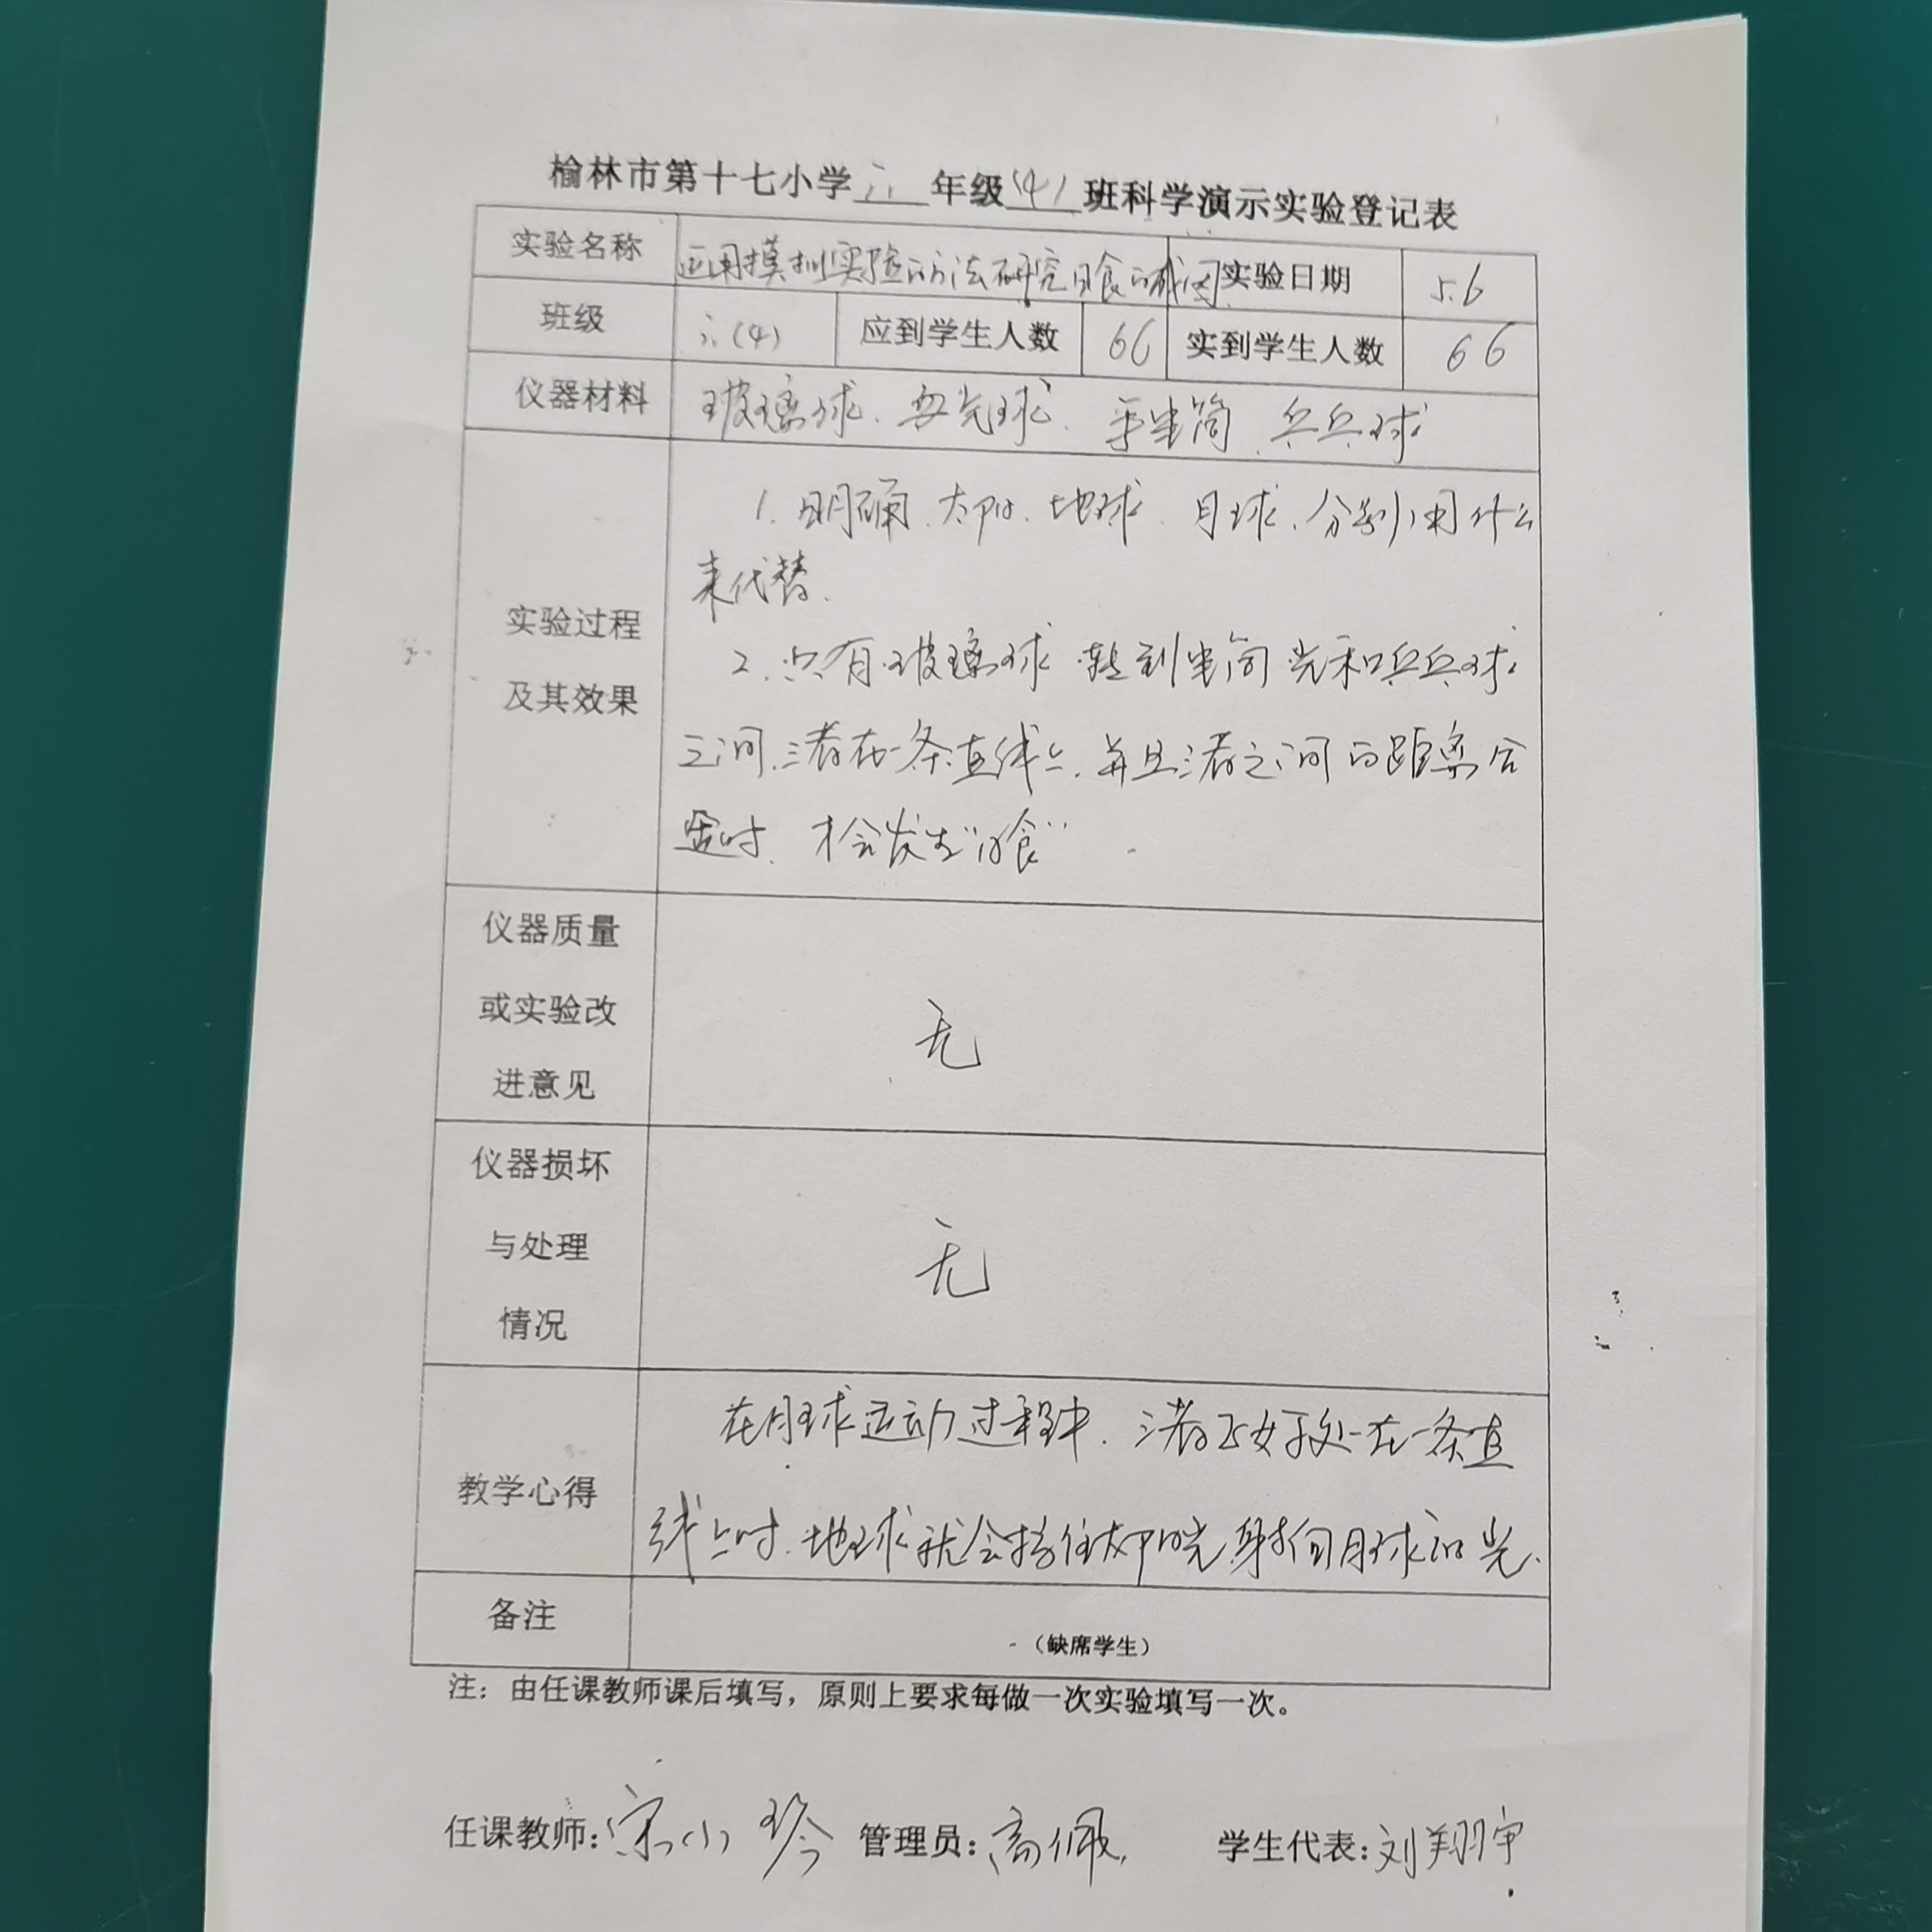 榆林市第十七小学 六 年级(4)班科学演示实验登记表
实验名称 运用模拟实验的方法研究日食的成因 实验日期 5.6
班级 六(4) 应到学生人数 66 实到学生人数 66
仪器材料 玻璃球、 手电筒、乒乓球
1.明确、太阳、地球、月球、分别用什么
来代替.
实验过程
及其效果
2.只有玻璃球转到电筒光和乒乓球
之间,三者在一条直线上,并且三者之间的距离合
适时,才会发生“日食”
仪器质量
或实验改
进意见
无
仪器损坏
与处理
情况
无
教学心得
在月球运动过程中,三者正好处在一条直
线上时.地球就会挡住太阳光射向月球的光.
备注
(缺席学生)
注：由任课教师课后填写，原则上要求每做一次实验填写一次。
任课教师:宋小琴 管理员:高佩 学生代表:刘翔宇